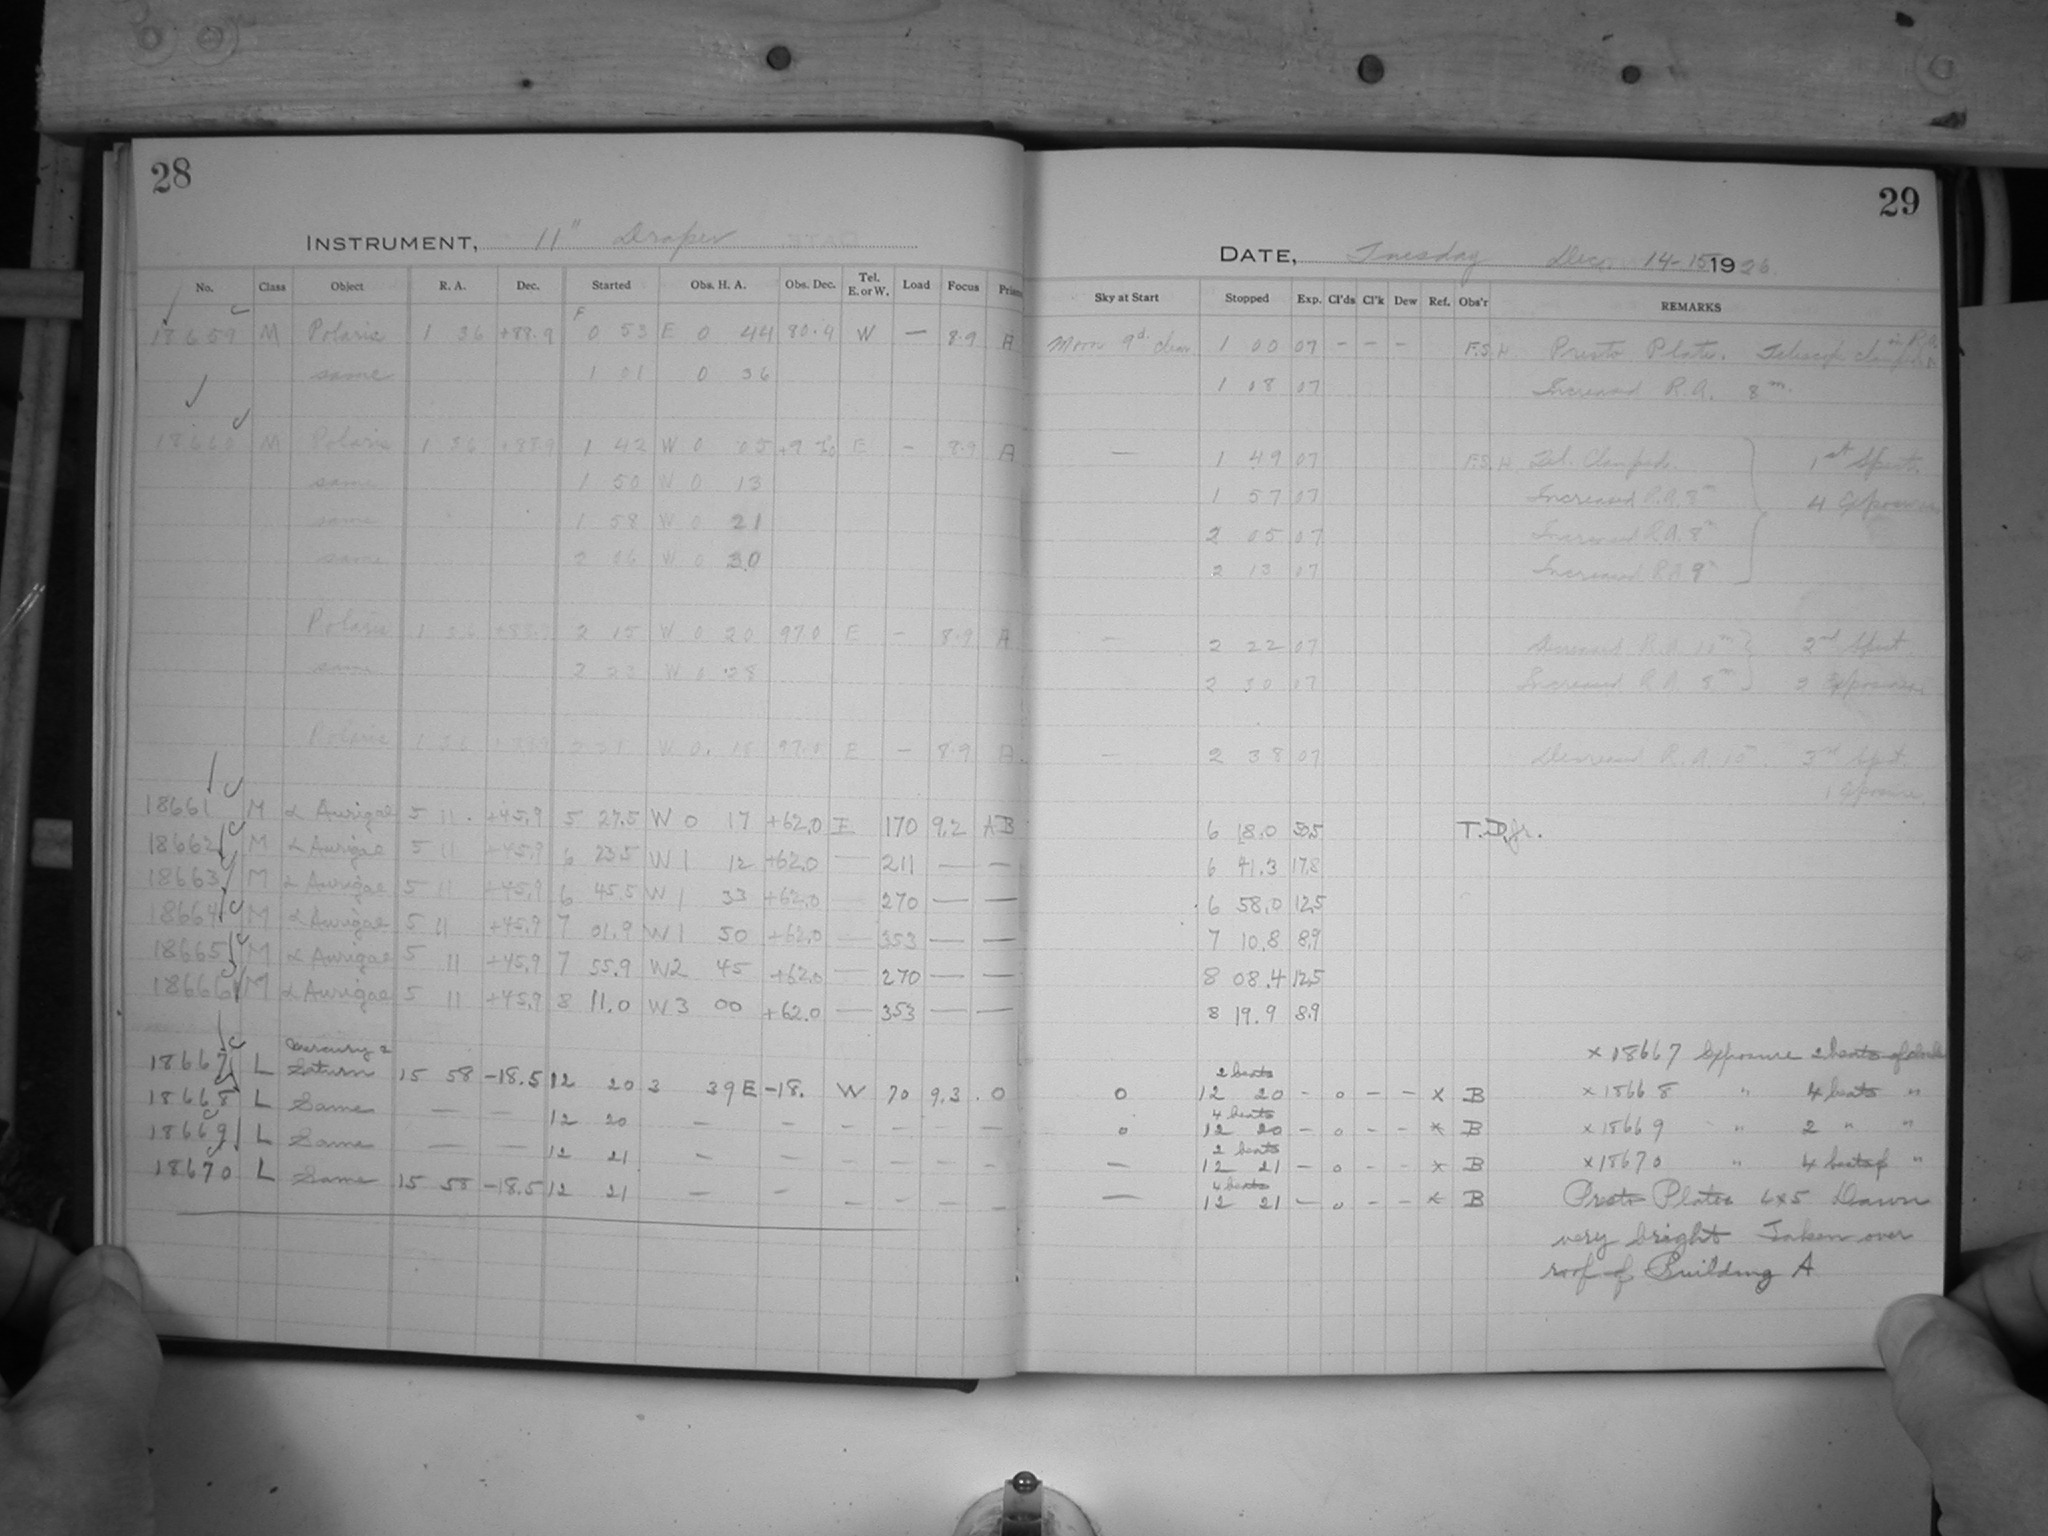 28
INSTRUMENT, 11" Draper
No. Class Object R. A. Dec. Started Obs. H. A. Obs. Dec. Tel. E. or W. Load Focus Prism
18659 M Polaris 1 36 +88.9 0 53 E 0 44 80.9 W — 8.9 A
same 1 01 0 36
18660 M Polaris 1 36 +88.9 1 42 W 0 05 E — 8.9 A
same 1 50 W 0 13
same 1 58 W 0 21
same 2 06 W 0 30
Polaris 1 36 +88.9 2 15 W 0 20 97.0 E — 8.9 A
same 2 23 W 0 28
Polaris 1 36 +88.9 2 31 W 0. 18 97.0 E — 8.9 A
18661 M α Aurigae 5 11. +45.9 5 27.5 W 0 17 +62.0 E 170 9.2 AB
18662 M α Aurigae 5 11 +45.9 6 23.5 W 1 12 +62.0 — 211 — —
18663 M α Aurigae 5 11 +45.9 6 45.5 W 1 33 +62.0 — 270 — —
18664 M α Aurigae 5 11 +45.9 7 01.9 W 1 50 +62.0 — 353 — —
18665 M α Aurigae 5 11 +45.9 7 55.9 W 2 45 +62.0 — 270 — —
18666 M α Aurigae 5 11 +45.9 8 11.0 W 3 00 +62.0 — 353 — —
Mercury &
18667 L Saturn 15 58 -18.5 12 20 3 39 E -18. W 70 9.3 . 0
18668 L Same — — 12 20 — — — — — —
18669 L Same — — 12 21 — — — — — —
18670 L Same 15 58 -18.5 12 21 — — — — — —
29
DATE, Tuesday Dec. 14-15 1926
Sky at Start Stopped Exp. Cl'ds Cl'k Dew Ref. Obs'r REMARKS
Moon 9d. clear 1 00 07 - - - F.S.H. Presto Plate. Telescope clamped in R.A.
1 08 07 Increased R.A. 8m.
— 1 49 07 F.S.H. Tel. Clamped. 1st Spect.
1 57 07 Increased R.A. 8m 4 Exposures
2 05 07 Increased R.A. 8m
2 13 07 Increased R.A 9m
— 2 22 07 Decreased R.A. 10m 2nd Spect.
2 30 07 Increased R.A. 8m 2 Exposures
— 2 38 07 Decreased R.A. 10m. 3rd Spect.
1 Exposure.
6 18.0 50.5 T.D.Jr.
6 41.3 17.8
6 58.0 12.5
7 10.8 8.9
8 08.4 12.5
8 19.9 8.9
x 18667 Exposure 2 beats of clock
2 beats
0 12 20 - 0 - - x B x 18668 " 4 beats "
4 beats
0 12 20 - 0 - - x B x 18669 " 2 " "
2 beats
— 12 21 - 0 - - x B x 18670 " 4 beats of "
4 beats
— 12 21 - 0 - - x B Presto Plates 4x5 Dawn
very bright Taken over
roof of Building A